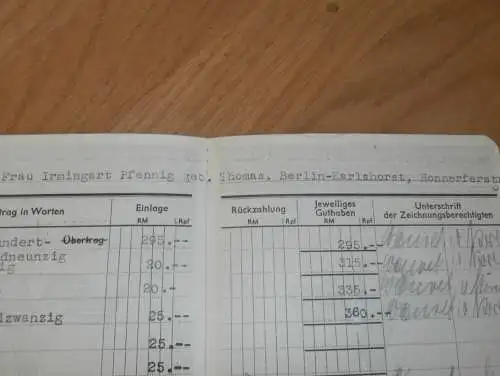 Frau Irmingart Pfennig geb. Thomas. Berlin-Karlshorst, Honnerferstr
trag in Worten Einlage Rückzahlung Jeweiliges Guthaben Unterschrift der Zeichnungsberechtigten
RM Rpf RM Rpf RM Rpf
undert- Übertrag 295.-- 295.--
dneunzig 20.-- 315.--
ig
20.- 335.--
lzwanzig 25.-- 360.--
25.--
25.--